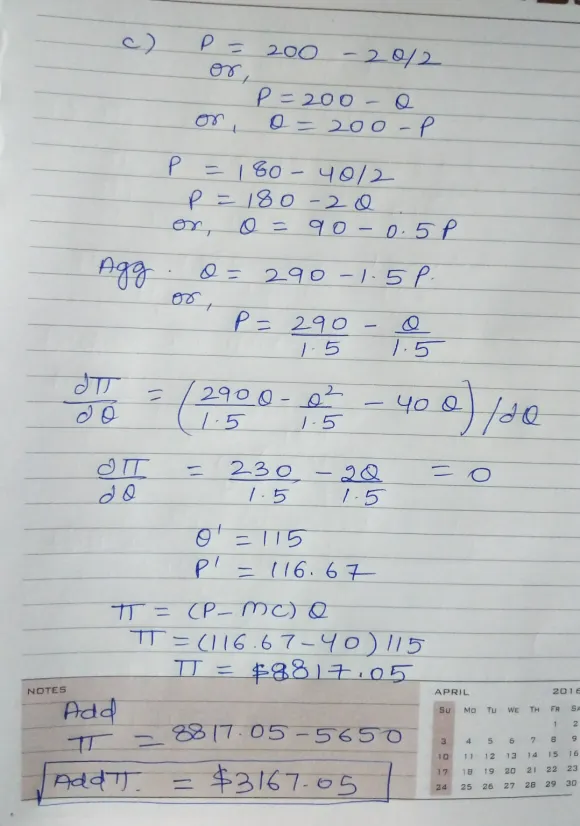 c) P = 200 - 2Q/2
or,
P = 200 - Q
or, Q = 200 - P
P = 180 - 4Q/2
P = 180 - 2Q
or, Q = 90 - 0.5P
Agg. Q = 290 - 1.5P.
or,
P = 290/1.5 - Q/1.5
dπ/dQ = (290Q/1.5 - Q²/1.5 - 40Q)/dQ
dπ/dQ = 230/1.5 - 2Q/1.5 = 0
Q' = 115
P' = 116.67
π = (P - MC) Q
π = (116.67 - 40) 115
π = $8817.05
NOTES
Add
π = 8817.05 - 5650
Add π. = $3167.05
APRIL 2016
Su Mo Tu We Th Fr Sa
1 2
3 4 5 6 7 8 9
10 11 12 13 14 15 16
17 18 19 20 21 22 23
24 25 26 27 28 29 30